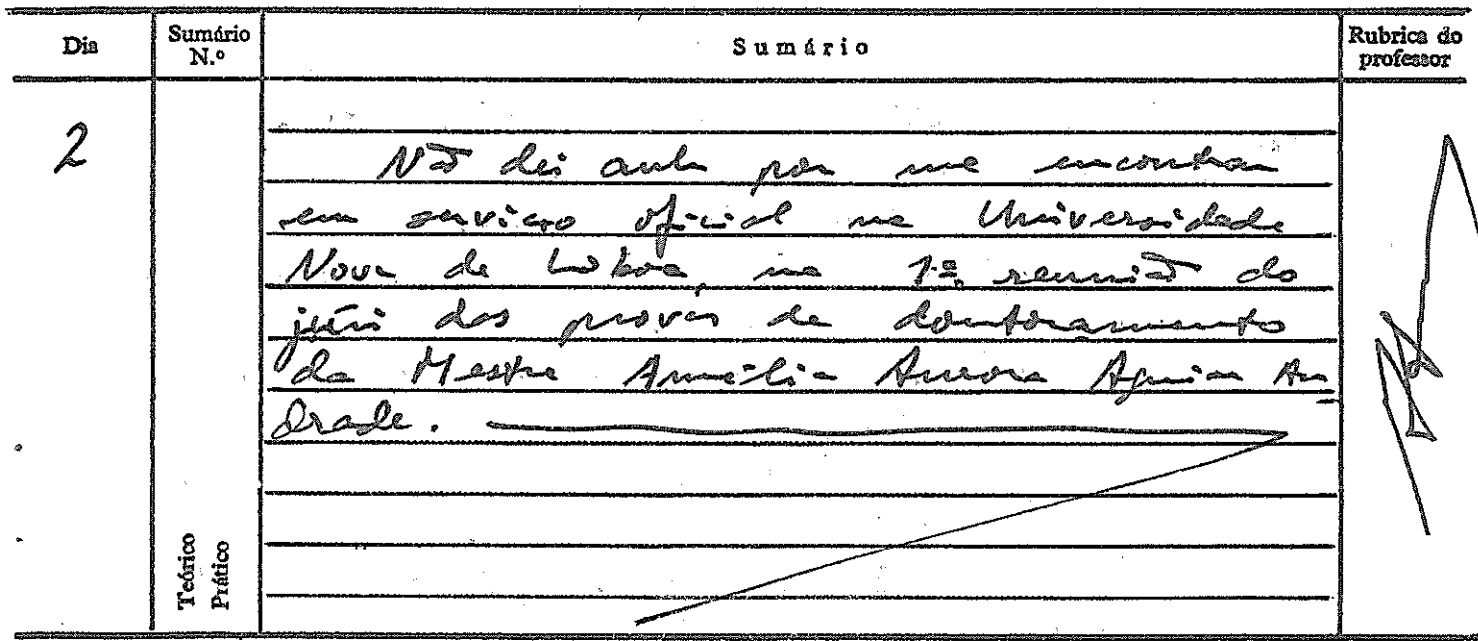 Dia
Sumário N.º
Sumário
Rubrica do professor
2
Não dei aula por me encontrar
em serviço oficial na Universidade
Nova de Lisboa, na 1ª reunião do
júri das provas de doutoramento
da Mestre Amélia Aurora Aguiar An
drade.
Teórico
Prático